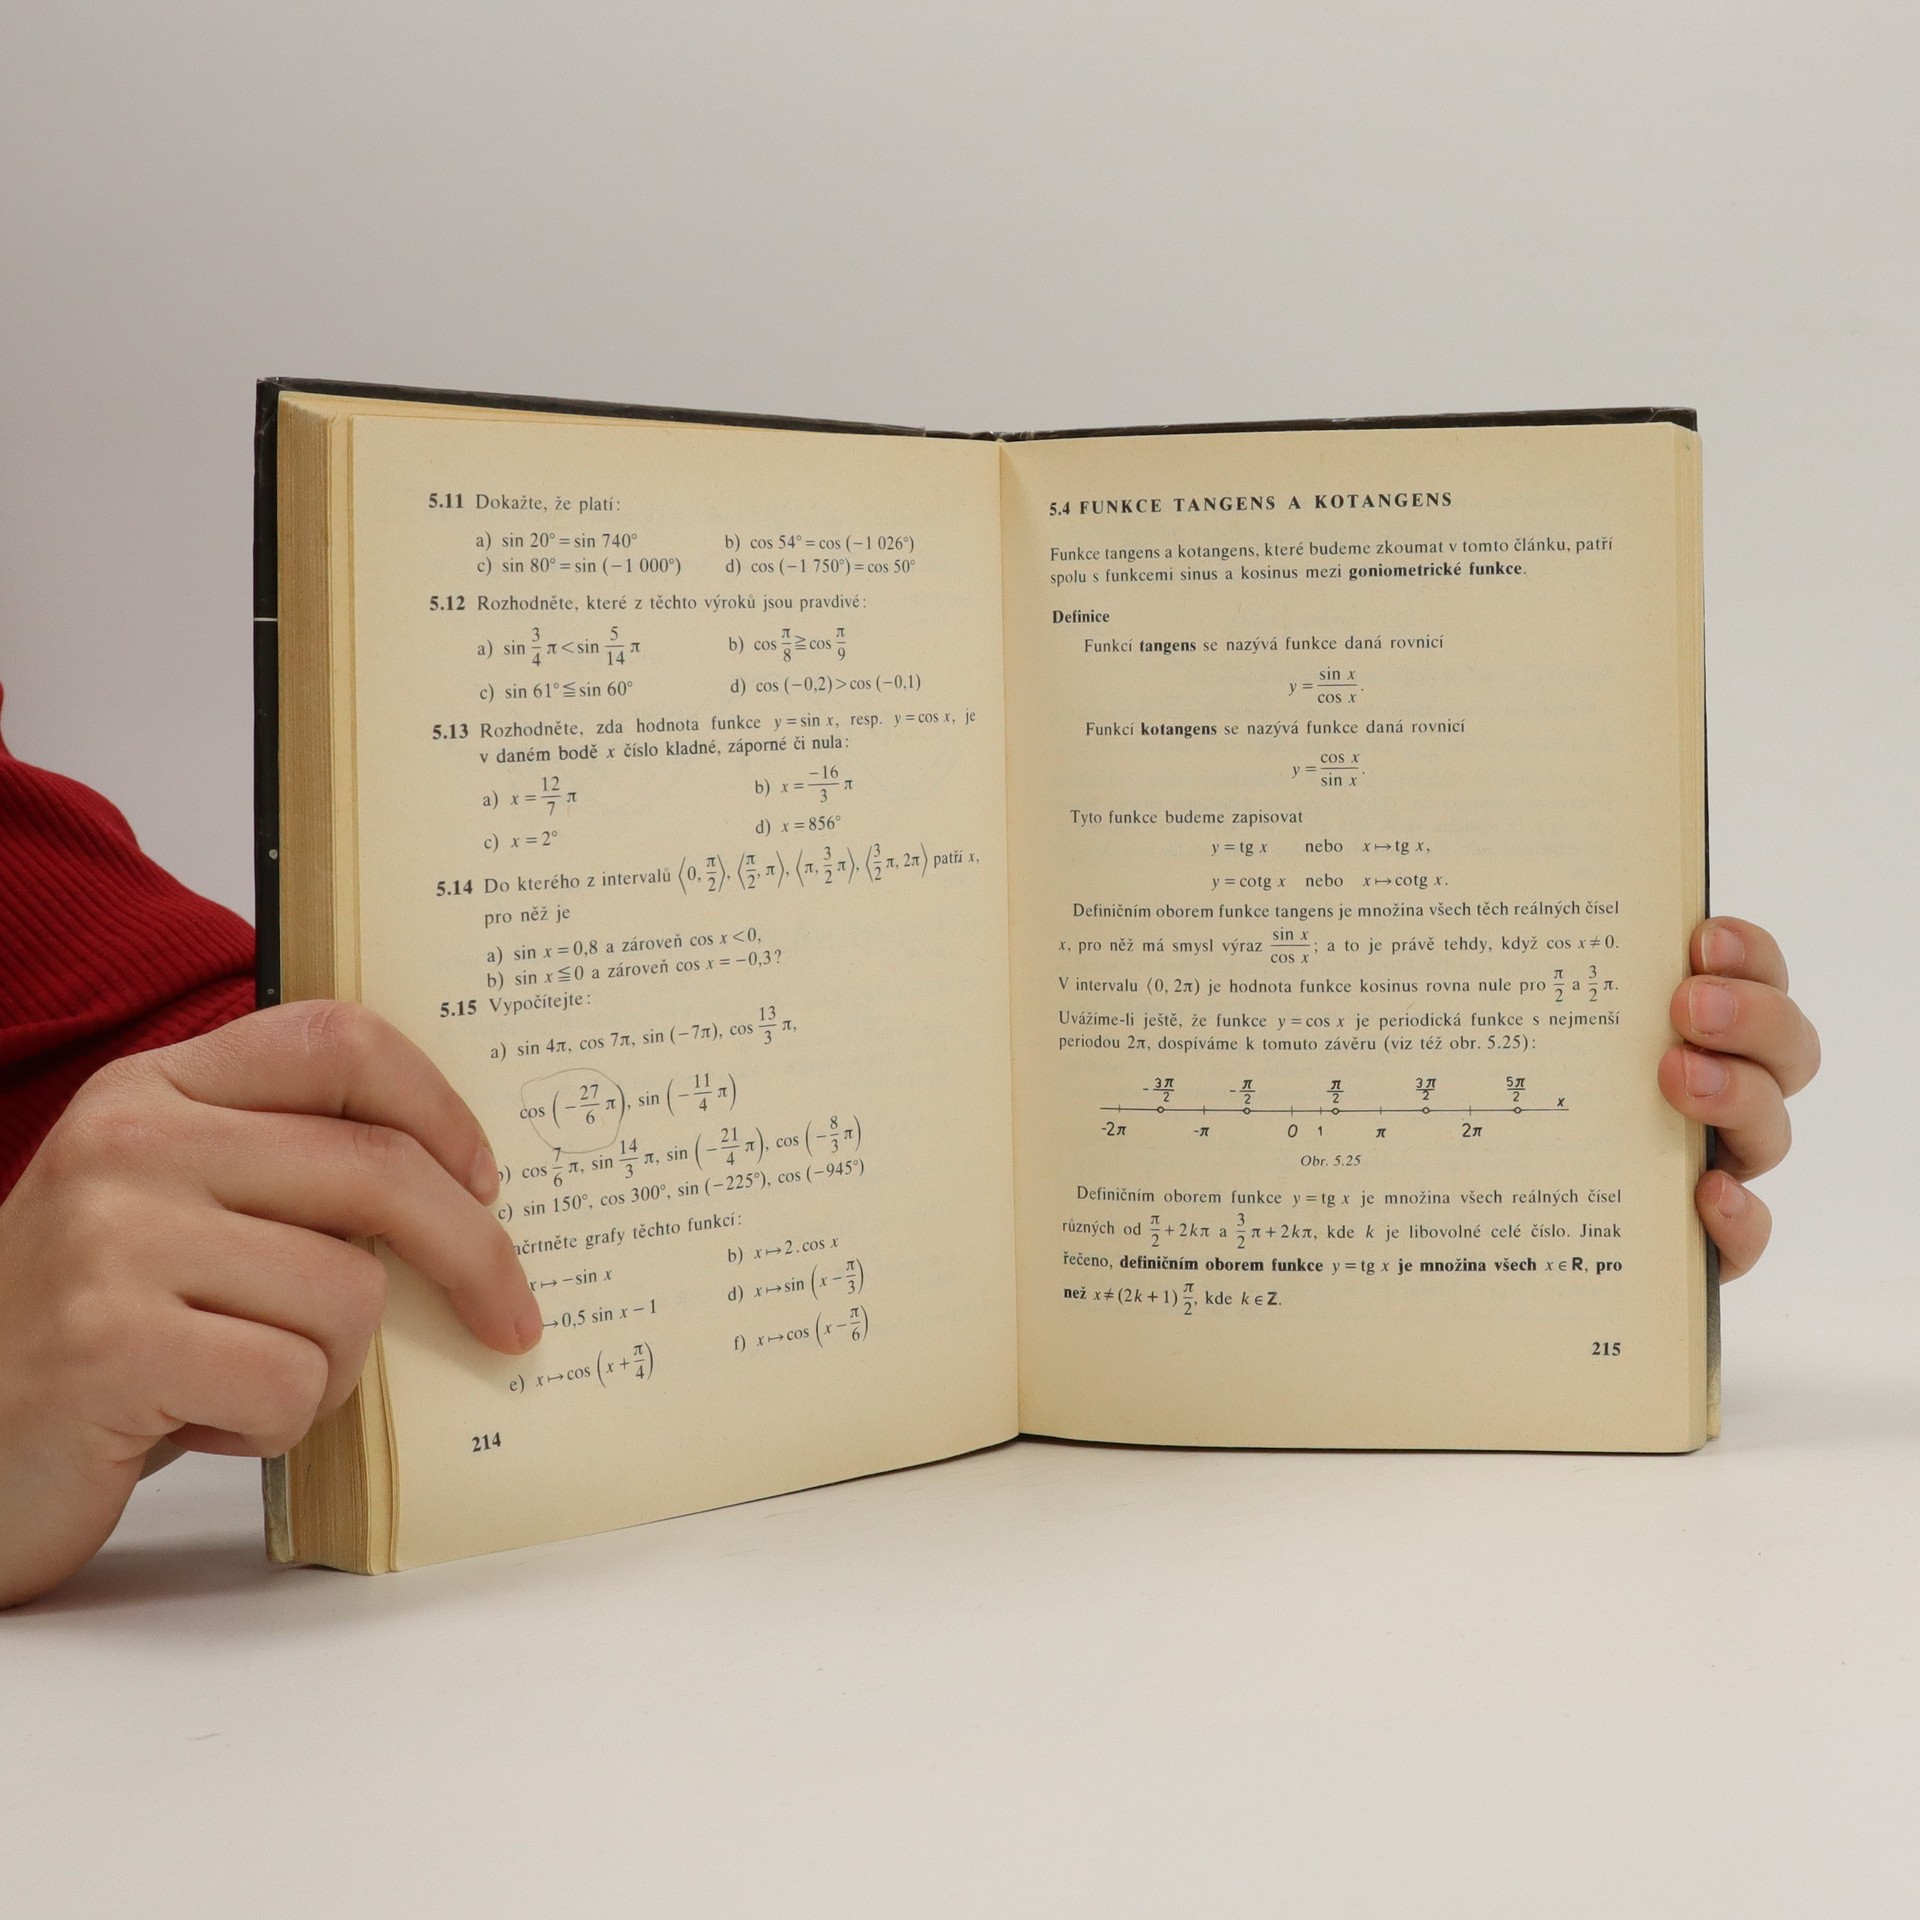 5.11 Dokažte, že platí:
a) sin 20° = sin 740° b) cos 54° = cos (−1 026°)
c) sin 80° = sin (−1 000°) d) cos (−1 750°) = cos 50°
5.12 Rozhodněte, které z těchto výroků jsou pravdivé:
a) sin 3/4 π < sin 5/14 π b) cos π/8 ≧ cos π/9
c) sin 61° ≦ sin 60° d) cos (−0,2) > cos (−0,1)
5.13 Rozhodněte, zda hodnota funkce y = sin x, resp. y = cos x, je
v daném bodě x číslo kladné, záporné či nula:
a) x = 12/7 π b) x = −16/3 π
c) x = 2° d) x = 856°
5.14 Do kterého z intervalů ⟨0, π/2), ⟨π/2, π), ⟨π, 3/2 π), ⟨3/2 π, 2π) patří x,
pro něž je
a) sin x = 0,8 a zároveň cos x < 0,
b) sin x ≦ 0 a zároveň cos x = −0,3?
5.15 Vypočítejte:
a) sin 4π, cos 7π, sin (−7π), cos 13/3 π,
cos (−27/6 π), sin (−11/4 π)
) cos 7/6 π, sin 14/3 π, sin (−21/4 π), cos (−8/3 π)
c) sin 150°, cos 300°, sin (−225°), cos (−945°)
črtněte grafy těchto funkcí:
x ↦ −sin x b) x ↦ 2 . cos x
↦ 0,5 sin x − 1 d) x ↦ sin (x − π/3)
e) x ↦ cos (x + π/4) f) x ↦ cos (x − π/6)
214
5.4 FUNKCE TANGENS A KOTANGENS
Funkce tangens a kotangens, které budeme zkoumat v tomto článku, patří
spolu s funkcemi sinus a kosinus mezi goniometrické funkce.
Definice
Funkcí tangens se nazývá funkce daná rovnicí
y = sin x/cos x.
Funkcí kotangens se nazývá funkce daná rovnicí
y = cos x/sin x.
Tyto funkce budeme zapisovat
y = tg x nebo x ↦ tg x,
y = cotg x nebo x ↦ cotg x.
Definičním oborem funkce tangens je množina všech těch reálných čísel
x, pro něž má smysl výraz sin x/cos x; a to je právě tehdy, když cos x ≠ 0.
V intervalu ⟨0, 2π) je hodnota funkce kosinus rovna nule pro π/2 a 3/2 π.
Uvážíme-li ještě, že funkce y = cos x je periodická funkce s nejmenší
periodou 2π, dospíváme k tomuto závěru (viz též obr. 5.25):
-3π/2 -π/2 π/2 3π/2 5π/2 x
-2π -π 0 1 π 2π
Obr. 5.25
Definičním oborem funkce y = tg x je množina všech reálných čísel
různých od π/2 + 2kπ a 3/2 π + 2kπ, kde k je libovolné celé číslo. Jinak
řečeno, definičním oborem funkce y = tg x je množina všech x ∈ R, pro
než x ≠ (2k + 1) π/2, kde k ∈ Z.
215